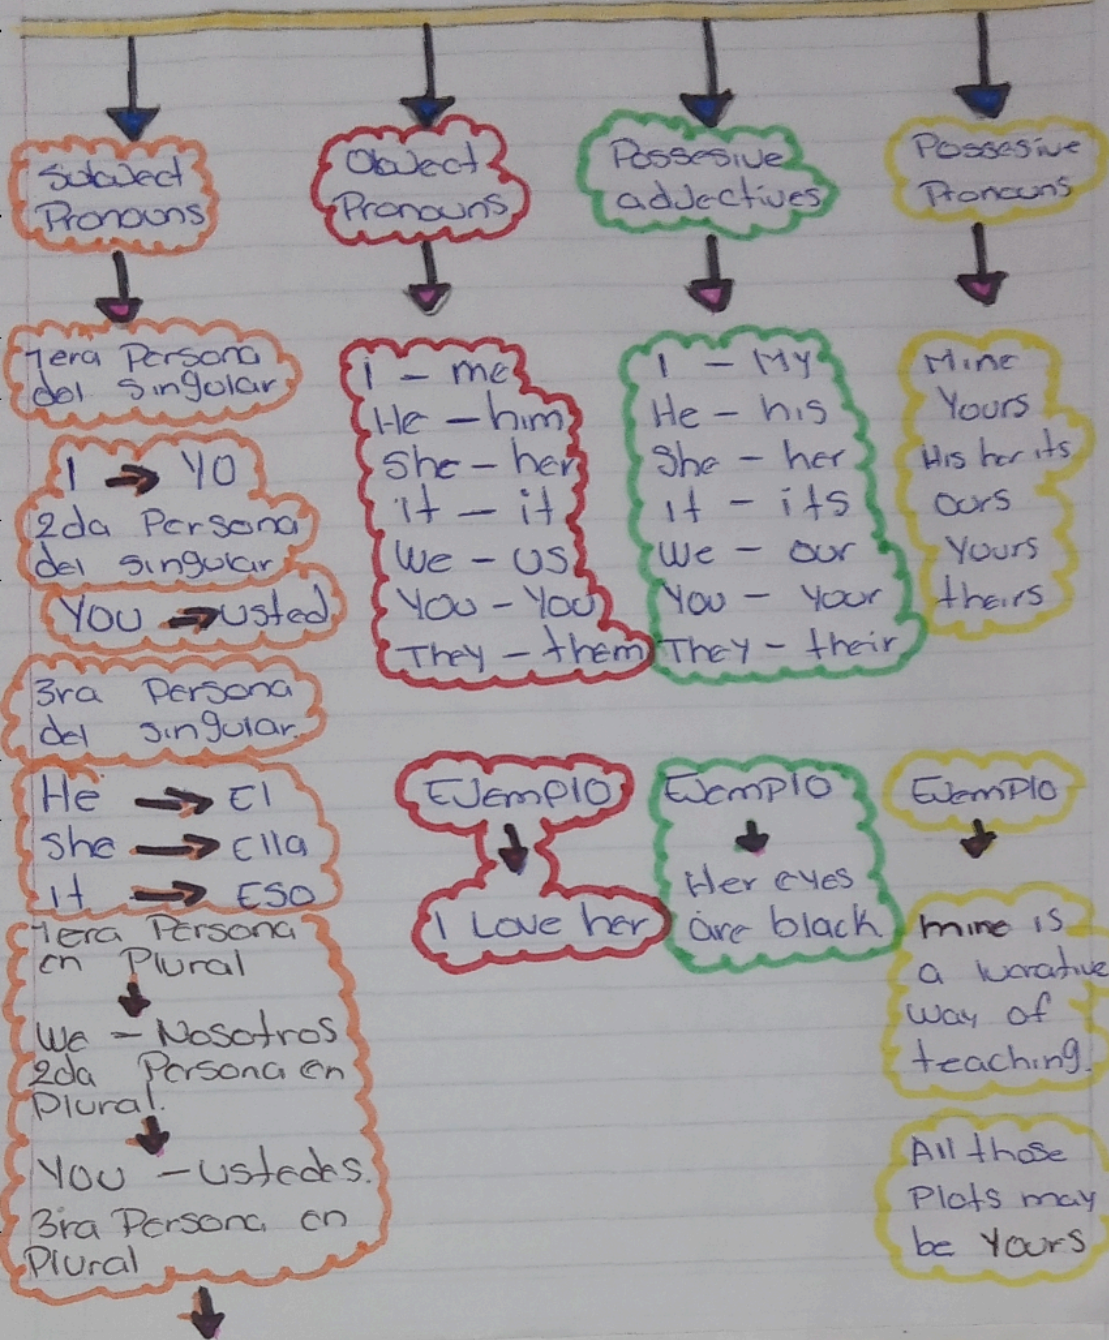 Subject
Pronouns
1era Persona
del singular
I → YO
2da Persona
del singular
You → usted
3ra Persona
del singular.
He → El
she → Ella
it → ESO
1era Persona
en Plural
We - Nosotros
2da Persona en
Plural.
You - ustedes.
3ra Persona en
Plural
Object
Pronouns
I - me
He - him
She - her
it - it
We - us
You - You
They - them
EJemplo
I Love her
Possesive
adjectives
I - My
He - his
She - her
it - its
We - our
You - Your
They - their
EJemplo
Her eyes
are black
Possesive
Pronouns
Mine
Yours
His her its
ours
Yours
theirs
EJemplo
mine is
a lucrative
way of
teaching.
All those
Plots may
be Yours